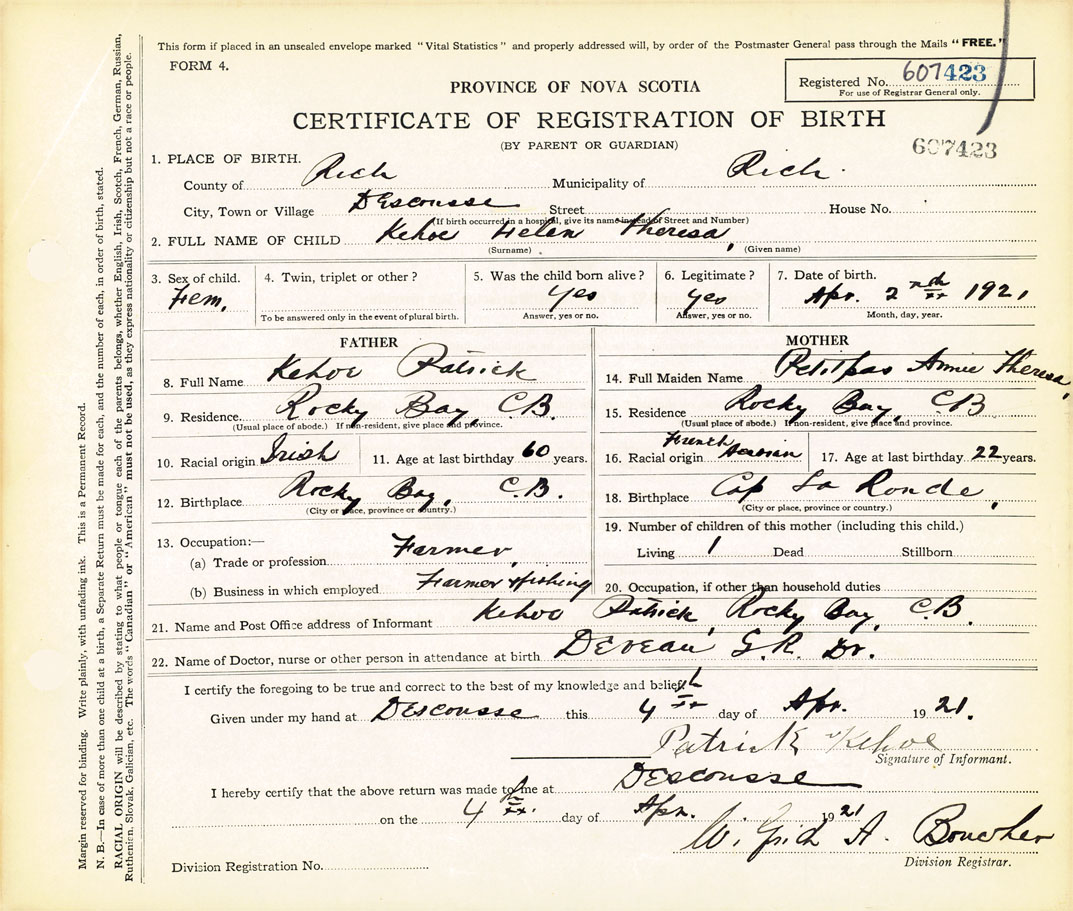 This form if placed in an unsealed envelope marked "Vital Statistics" and properly addressed will, by order of the Postmaster General pass through the Mails "FREE."
FORM 4.
Registered No. 607423
For use of Registrar General only.
PROVINCE OF NOVA SCOTIA
CERTIFICATE OF REGISTRATION OF BIRTH
(BY PARENT OR GUARDIAN)
607423
1. PLACE OF BIRTH.
County of Rich Municipality of Rich.
City, Town or Village Descousse Street House No.
(If birth occurred in a hospital, give its name instead of Street and Number)
2. FULL NAME OF CHILD Kehoe Helen Theresa,
(Surname) (Given name)
3. Sex of child. Fem,
4. Twin, triplet or other?
To be answered only in the event of plural birth.
5. Was the child born alive? Yes
Answer, yes or no.
6. Legitimate? Yes
Answer, yes or no.
7. Date of birth. Apr. 2nd 1921
Month, day, year.
FATHER
8. Full Name Kehoe Patrick
9. Residence. Rocky Bay, C.B.
(Usual place of abode.) If non-resident, give place and province.
10. Racial origin Irish
11. Age at last birthday 60 years.
12. Birthplace Rocky Bay, C.B.
(City or place, province or country.)
13. Occupation:—
(a) Trade or profession. Farmer,
(b) Business in which employed Farmer & fishing
MOTHER
14. Full Maiden Name Petitpas Annie Theresa,
15. Residence Rocky Bay, C.B
(Usual place of abode.) If non-resident, give place and province.
16. Racial origin French Acadian
17. Age at last birthday 22 years.
18. Birthplace Cap La Ronde,
(City or place, province or country.)
19. Number of children of this mother (including this child.)
Living 1 Dead Stillborn
20. Occupation, if other than household duties
21. Name and Post Office address of Informant Kehoe Patrick, Rocky Bay, C.B.
22. Name of Doctor, nurse or other person in attendance at birth Deveau G.R. Dr.
I certify the foregoing to be true and correct to the best of my knowledge and belief.
Given under my hand at Descousse this 4th day of Apr. 1921.
Patrick Kehoe
Signature of Informant.
I hereby certify that the above return was made to me at Descousse
on the 4th day of Apr. 1921
A. Boucher
Division Registrar.
Division Registration No.
Margin reserved for binding. Write plainly, with unfading ink. This is a Permanent Record.
N. B.—In case of more than one child at a birth, a Separate Return must be made for each, and the number of each, in order of birth, stated.
RACIAL ORIGIN will be described by stating to what people or tongue each of the parents belongs, whether English, Irish, Scotch, French, German, Russian,
Ruthenien, Slovak, Galician, etc. The words "Canadian" or "American" must not be used, as they express nationality or citizenship but not a race or people.